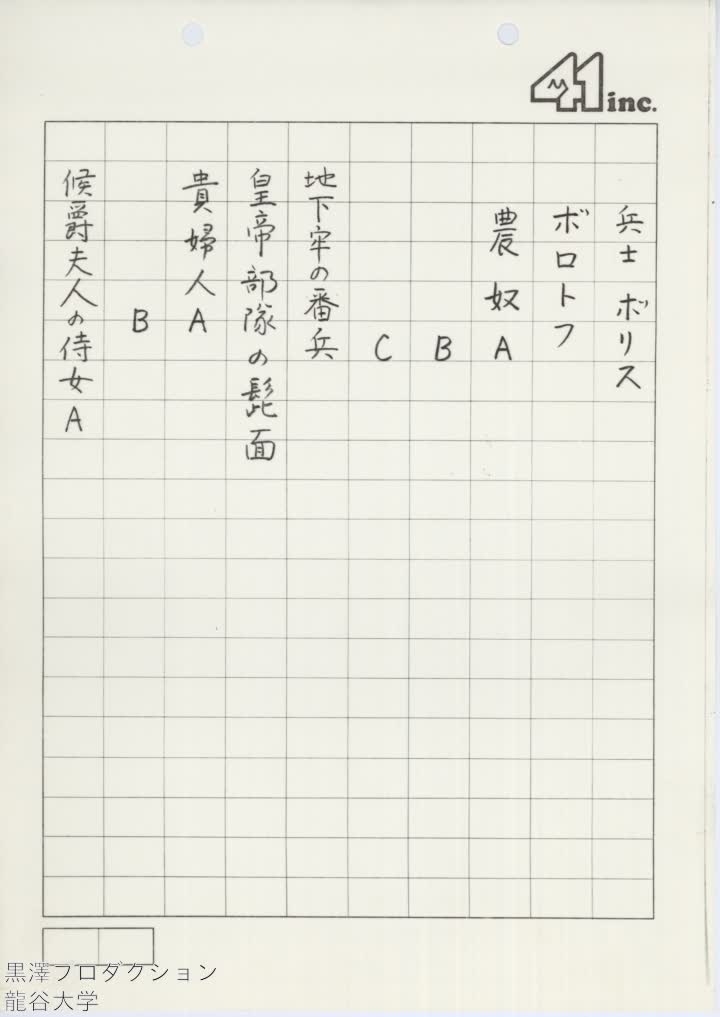 41 inc.
兵士 ボリス
ボロトフ
農奴A
B
C
地下牢の番兵
皇帝部隊の髭面
貴婦人A
B
侯爵夫人の侍女A
黒澤プロダクション
龍谷大学